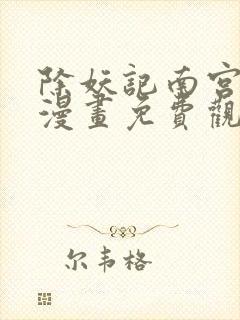 除妖記南宮
漫畫免費觀
尔韦格